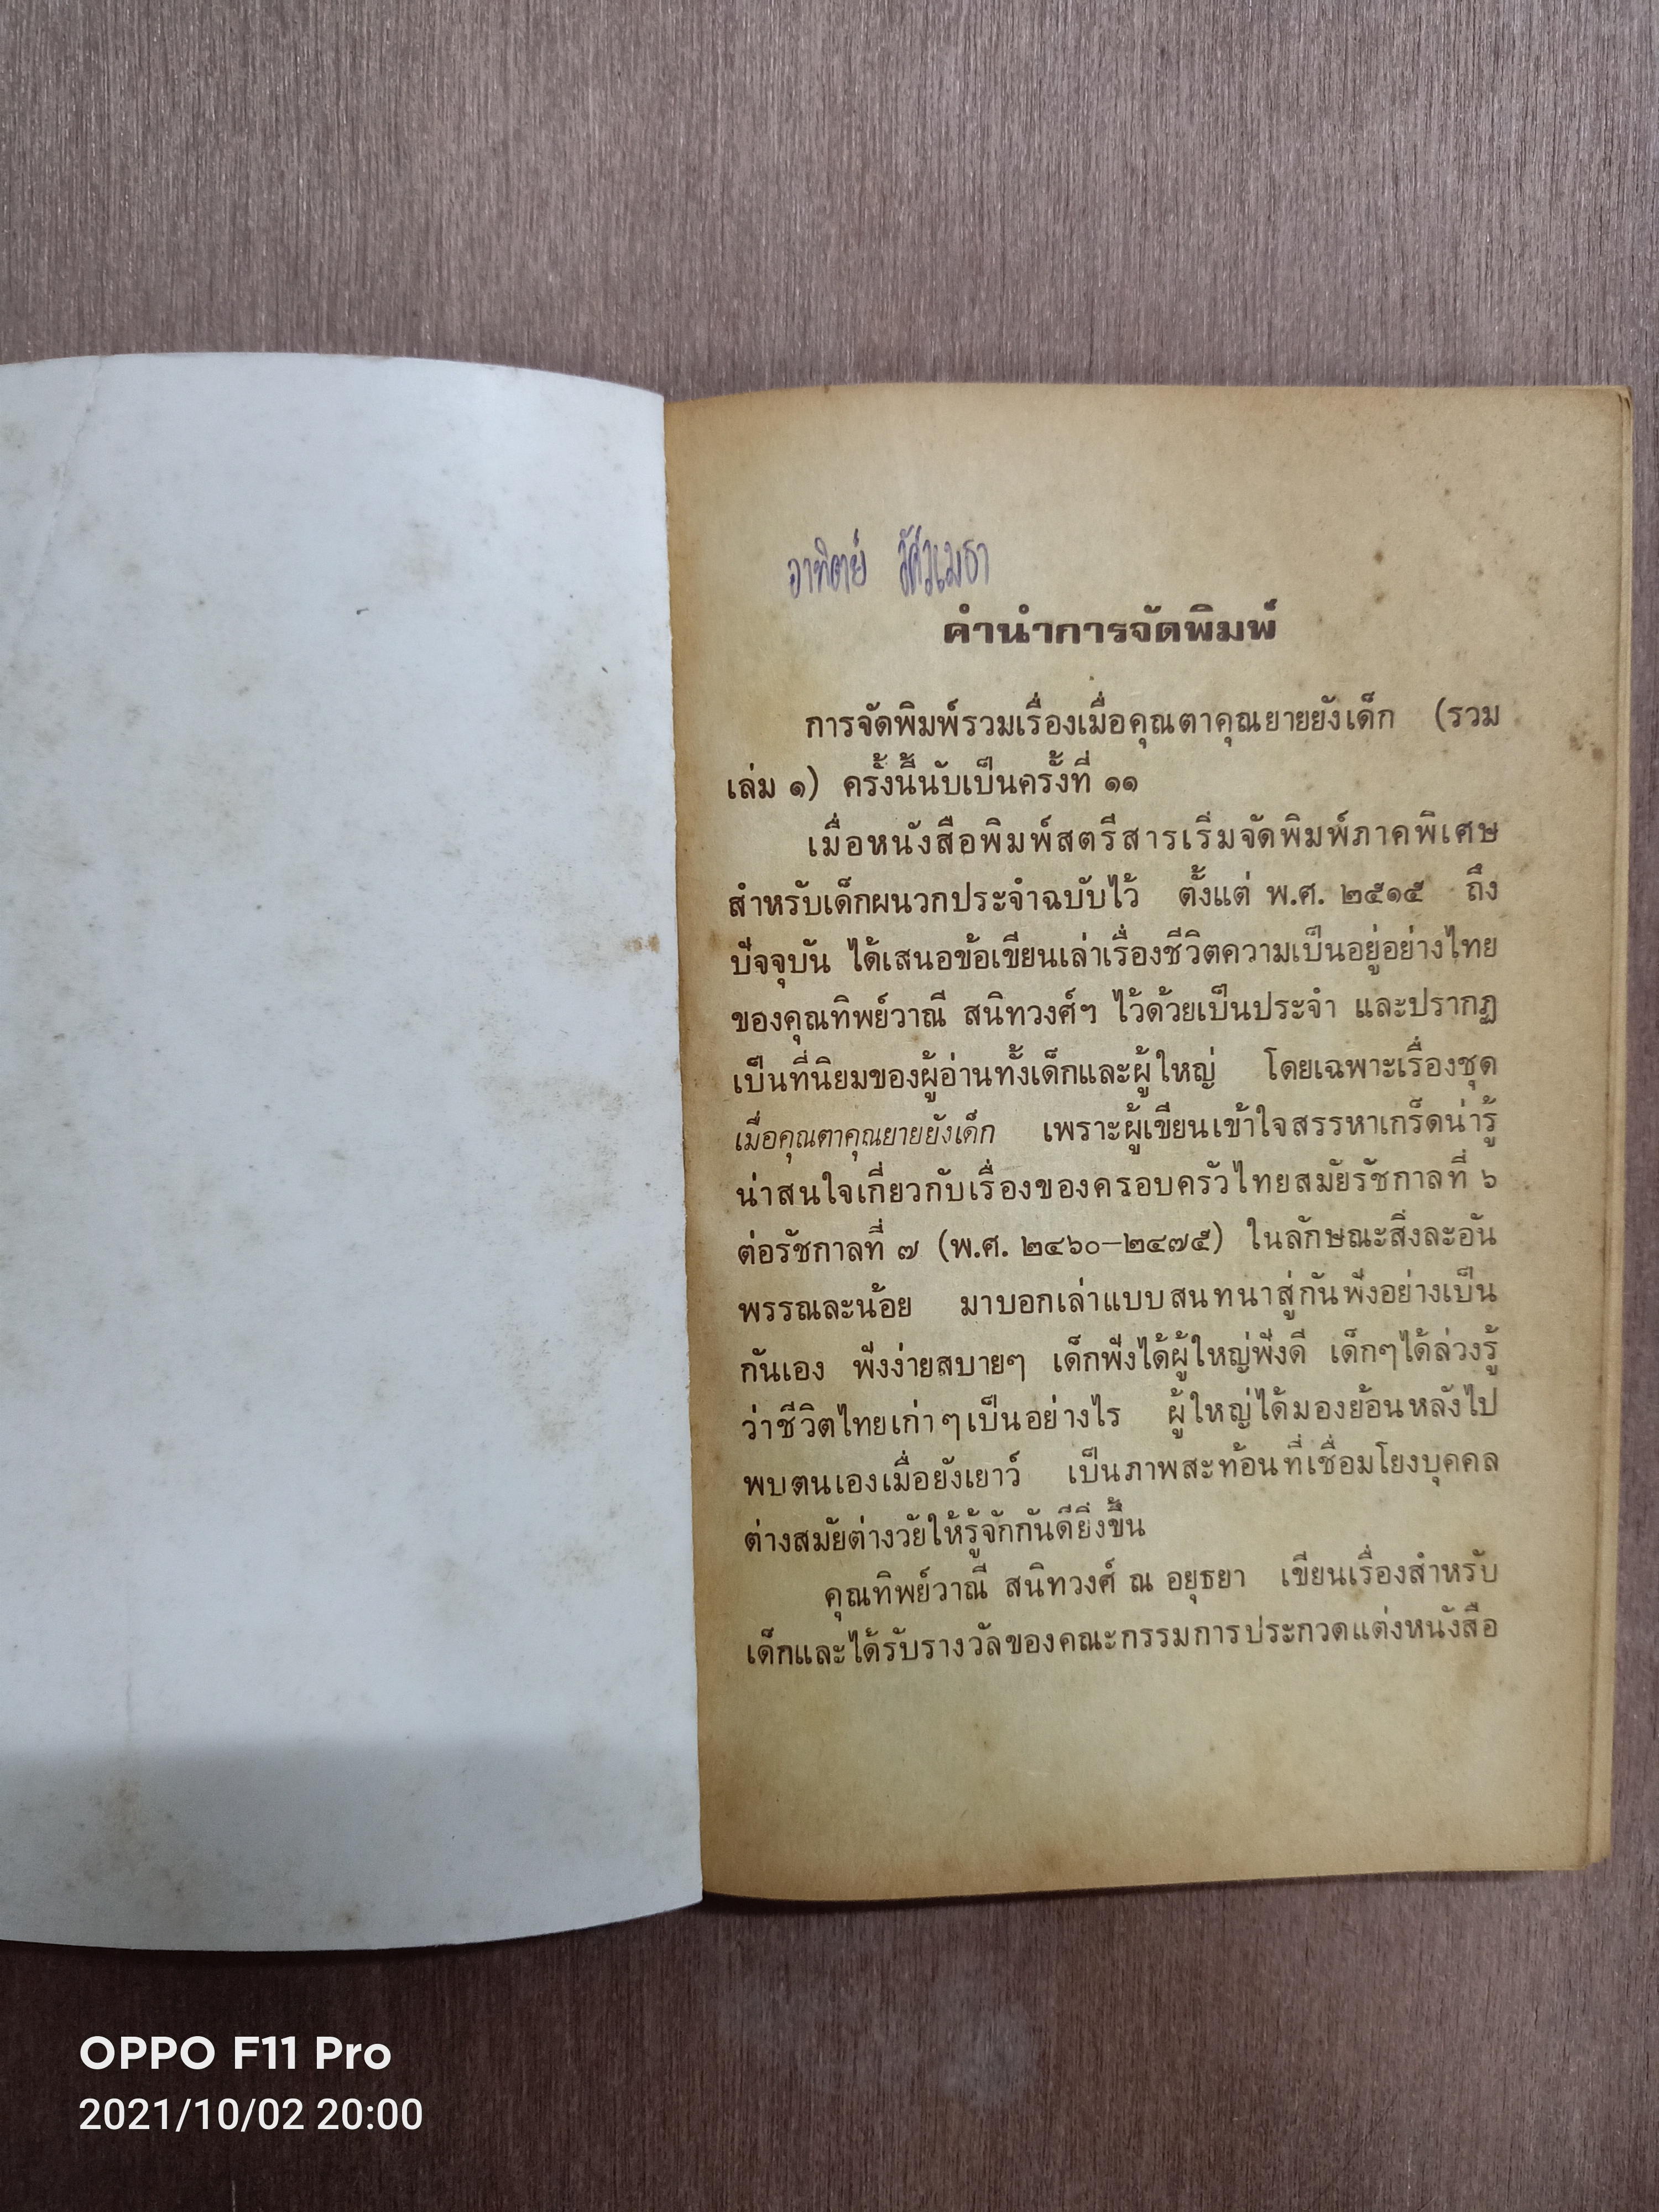 อาทิตย์
คำนำการจัดพิมพ์
การจัดพิมพ์รวมเรื่องเมื่อคุณตาคุณยายยังเด็ก (รวม
เล่ม ๑) ครั้งนี้นับเป็นครั้งที่ ๑๑
เมื่อหนังสือพิมพ์สตรีสารเริ่มจัดพิมพ์ภาคพิเศษ
สำหรับเด็กผนวกประจำฉบับไว้ ตั้งแต่ พ.ศ. ๒๕๑๕ ถึง
ปัจจุบัน ได้เสนอข้อเขียนเล่าเรื่องชีวิตความเป็นอยู่อย่างไทย
ของคุณทิพย์วาณี สนิทวงศ์ฯ ไว้ด้วยเป็นประจำ และปรากฏ
เป็นที่นิยมของผู้อ่านทั้งเด็กและผู้ใหญ่ โดยเฉพาะเรื่องชุด
เมื่อคุณตาคุณยายยังเด็ก เพราะผู้เขียนเข้าใจสรรหาเกร็ดน่ารู้
น่าสนใจเกี่ยวกับเรื่องของครอบครัวไทยสมัยรัชกาลที่ ๖
ต่อรัชกาลที่ ๗ (พ.ศ. ๒๔๖๐–๒๔๗๕) ในลักษณะสิ่งละอัน
พรรณละน้อย มาบอกเล่าแบบสนทนาสู่กันฟังอย่างเป็น
กันเอง ฟังง่ายสบายๆ เด็กฟังได้ผู้ใหญ่ฟังดี เด็กๆได้ล่วงรู้
ว่าชีวิตไทยเก่าๆเป็นอย่างไร ผู้ใหญ่ได้มองย้อนหลังไป
พบตนเองเมื่อยังเยาว์ เป็นภาพสะท้อนที่เชื่อมโยงบุคคล
ต่างสมัยต่างวัยให้รู้จักกันดียิ่งขึ้น
คุณทิพย์วาณี สนิทวงศ์ ณ อยุธยา เขียนเรื่องสำหรับ
เด็กและได้รับรางวัลของคณะกรรมการประกวดแต่งหนังสือ
OPPO F11 Pro
2021/10/02 20:00